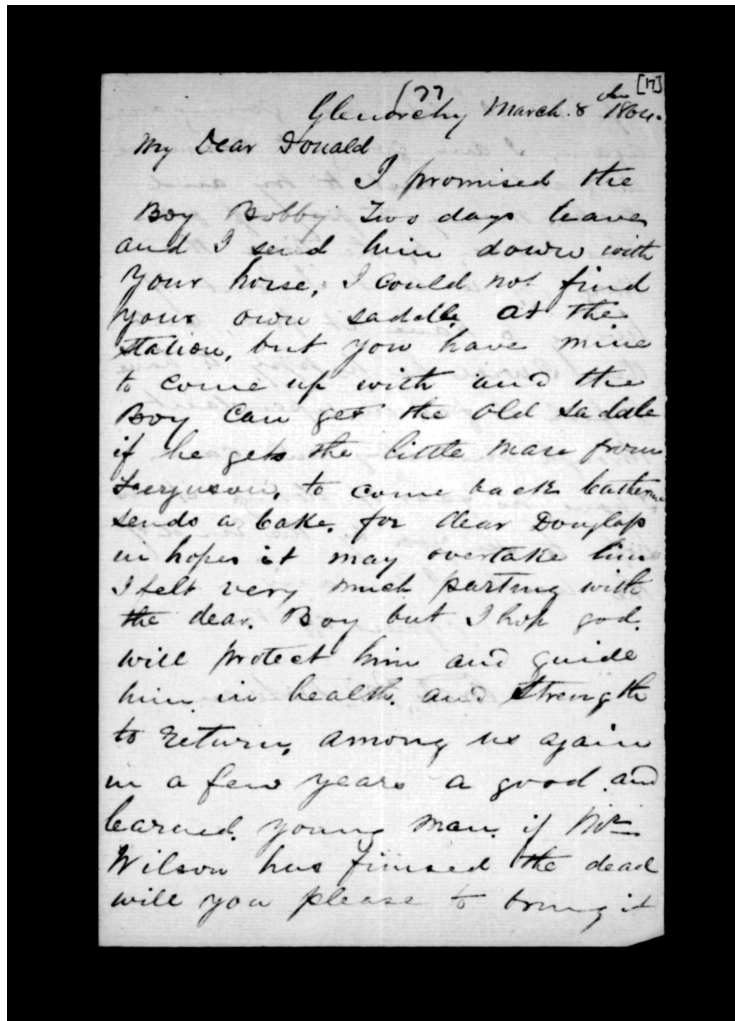 [17]
(77
Glenorchy March. 8th 1864.
My Dear Donald
I promised the
Boy Bobby Two days leave
and I send him down with
your horse, I could not find
your own saddle, at the
station, but you have mine
to come up with and the
Boy can get the old saddle
if he gets the little mare from
Ferguson, to come back Catherine
sends a Cake. for dear Douglass
in hopes it may overtake him
I felt very much parting with
the dear. Boy but I hop god.
will protect him and guide
him in health. and Strength
to return, among us again
in a few years a good. and
learned. young man. if Mr
Wilson has finised the dead
will you please to bring it